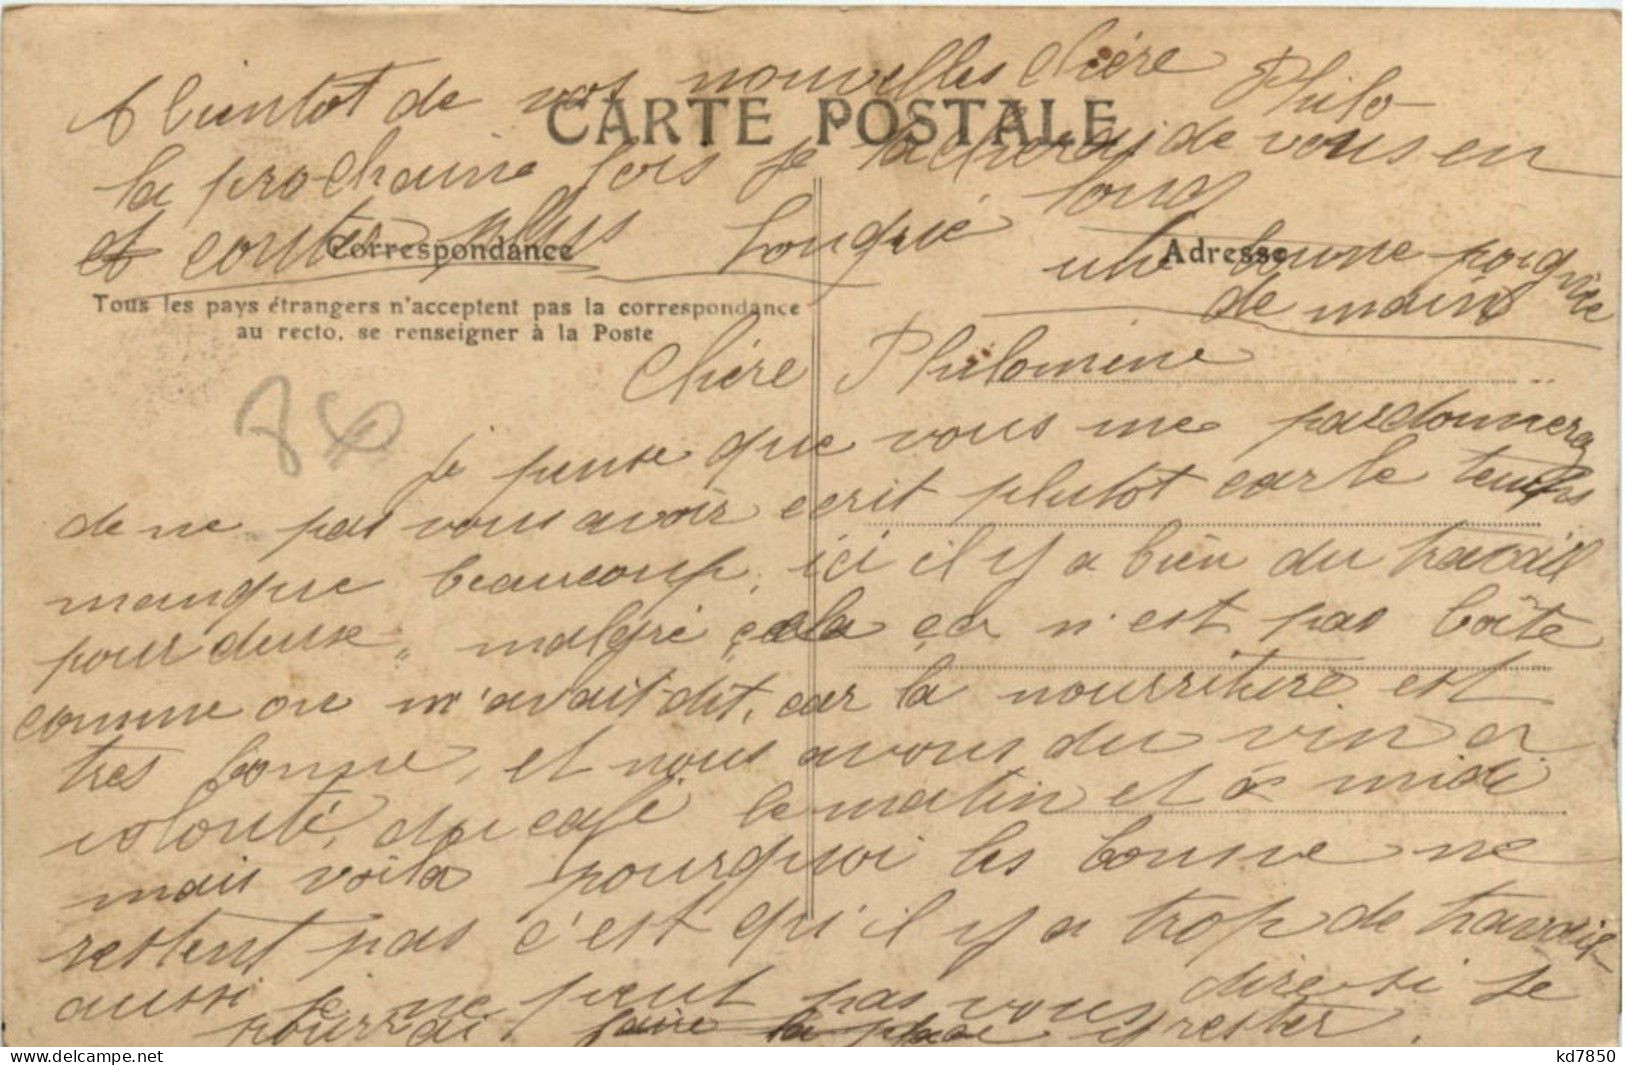 A bientot de vos nouvelles chère Philo-
CARTE POSTALE
la prochaine fois je tacherai de vous en
et conter plus long
Correspondance
Adresse
une bonne poignée
de mains
Tous les pays étrangers n'acceptent pas la correspondance
au recto, se renseigner à la Poste
Chère Philomène
86
je pense que vous me pardonnerez
de ne pas vous avoir ecrit plutot car le temps
manque beaucoup, ici il y a bien du travail
pour deux, malgré cela ça n'est pas boîte
comme on m'avait dit, car la nourriture est
tres bonne, et nous avons du vin a
volonté, du café le matin et à midi
mais voila pourquoi les bonne ne
restent pas c'est qu'il y a trop de travail
aussi je ne peut pas vous dire si je
pourrai faire la place y rester.
kd7850